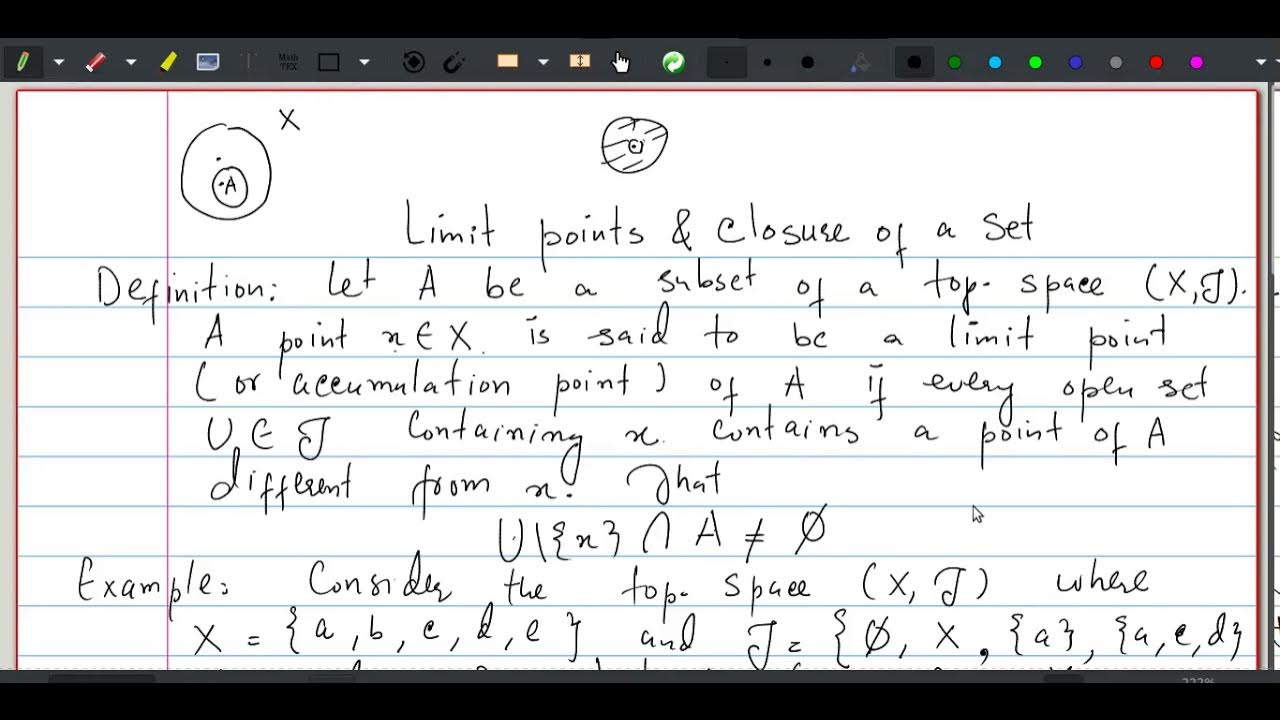 Math
TEX
X
A
Limit points & closure of a set
Definition: Let A be a subset of a top. space (X,J).
A point x ∈ X is said to be a limit point
(or accumulation point) of A if every open set
U ∈ J containing x contains a point of A
different from x. That
U\{x} ∩ A ≠ ∅
Example: Consider the top. space (X,J) where
X = {a,b,c,d,e} and J = {∅, X, {a}, {a,c,d}
222%